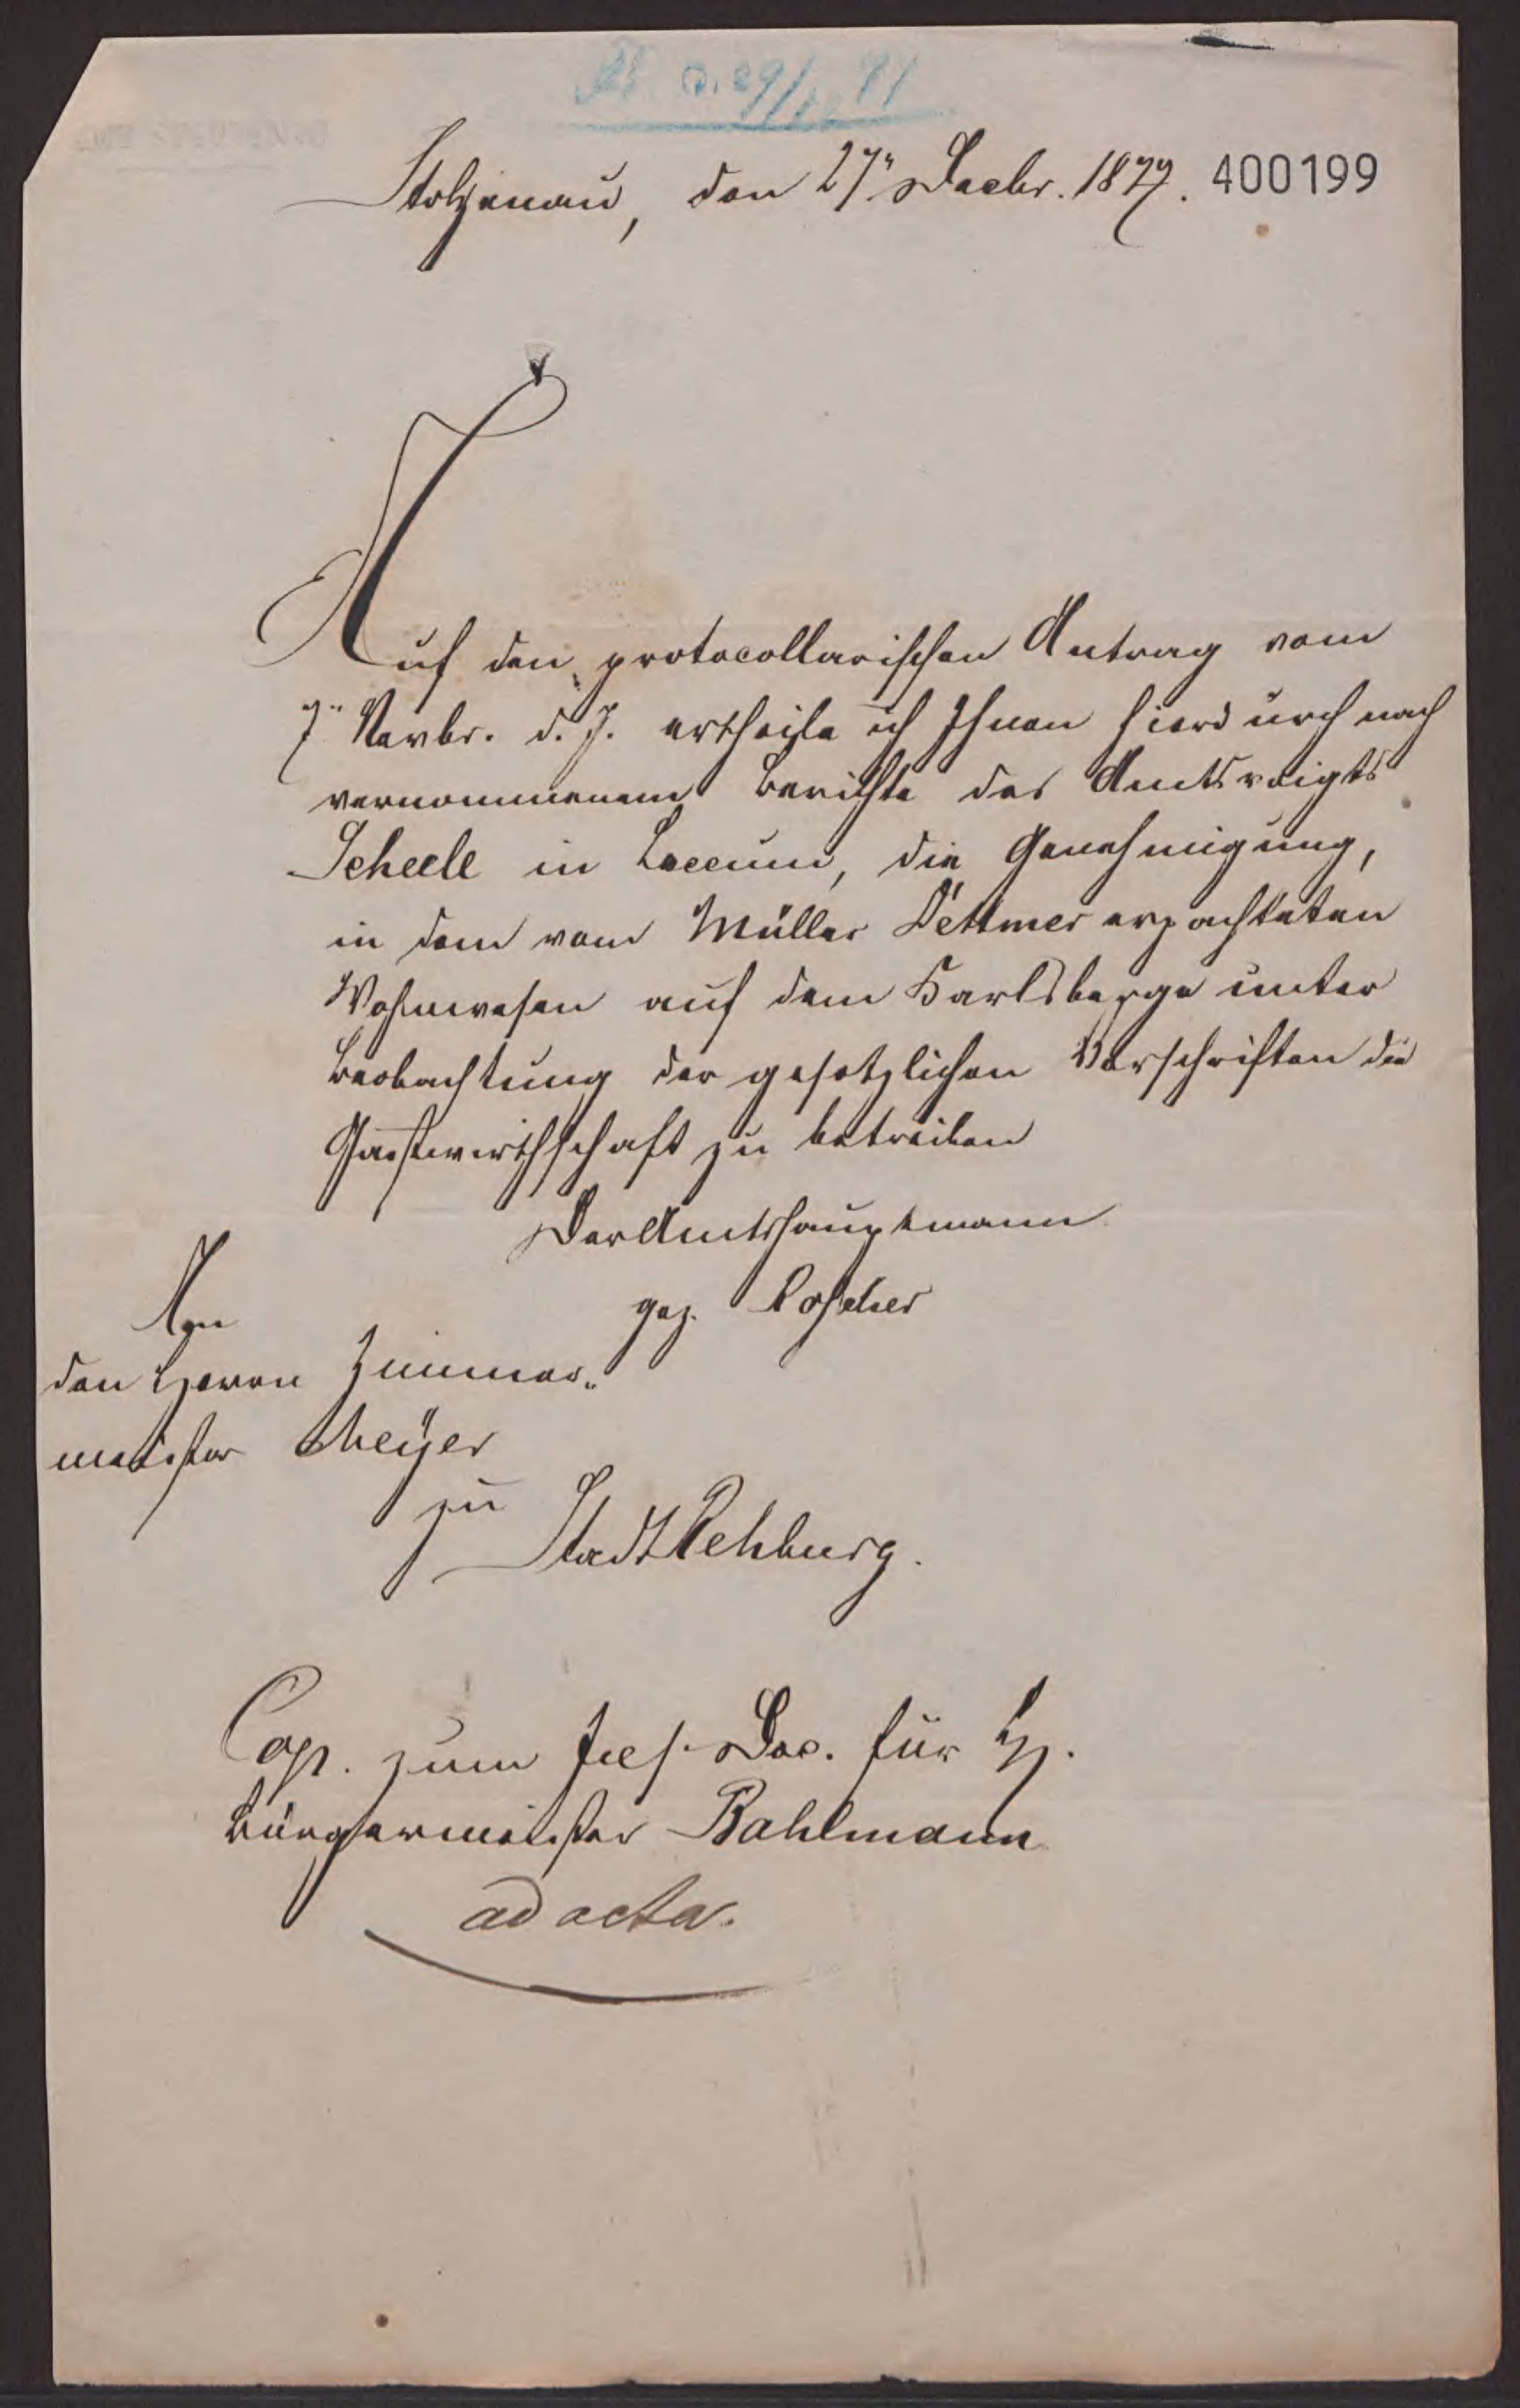 Stolzenau, den 27ⁿ Decbr. 1877. 400199
Auf den protocollarischen Antrag vom
7ⁿ Novbr. d. J. ertheile ich Ihnen hierdurch nach
vernommenem Berichte des Amtsvoigts
Scheele in Loccum, die Genehmigung,
in dem vom Müller Dettmer erpachteten
Wohnwesen auf dem Harlsberge unter
Beobachtung der gesetzlichen Vorschriften die
Gastwirthschaft zu betreiben
Der Amtshauptmann
gez. Roscher
An
den Herrn Zimmer„
meister Meÿer
zu
Stadt Rehburg.
Cop. zum Doc. für H.
Bürgermeister Bahlmann
ad acta.